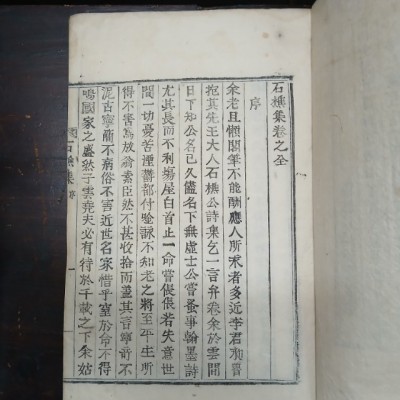 石樵集卷之全
序
余老且懶閣筆不能酬應人所求者多近李君
抱其先王大人石樵公詩集乞一言弁卷余於雲間
日下知公名已久儘名下無虛士公嘗蚤事翰墨詩
尤其長而不利場屋白首止一命嘗倀倀若失意世
間一切憂苦湮鬱都付唫詠不知老之將至平生所
得不啻爲放翁素臣然不甚收拾而並其言寧
泥古寧簡不病俗不害近世名家惜乎窒於命不得
鳴國家之盛然子雲堯夫必有待於千載之下余姑
石樵集 序